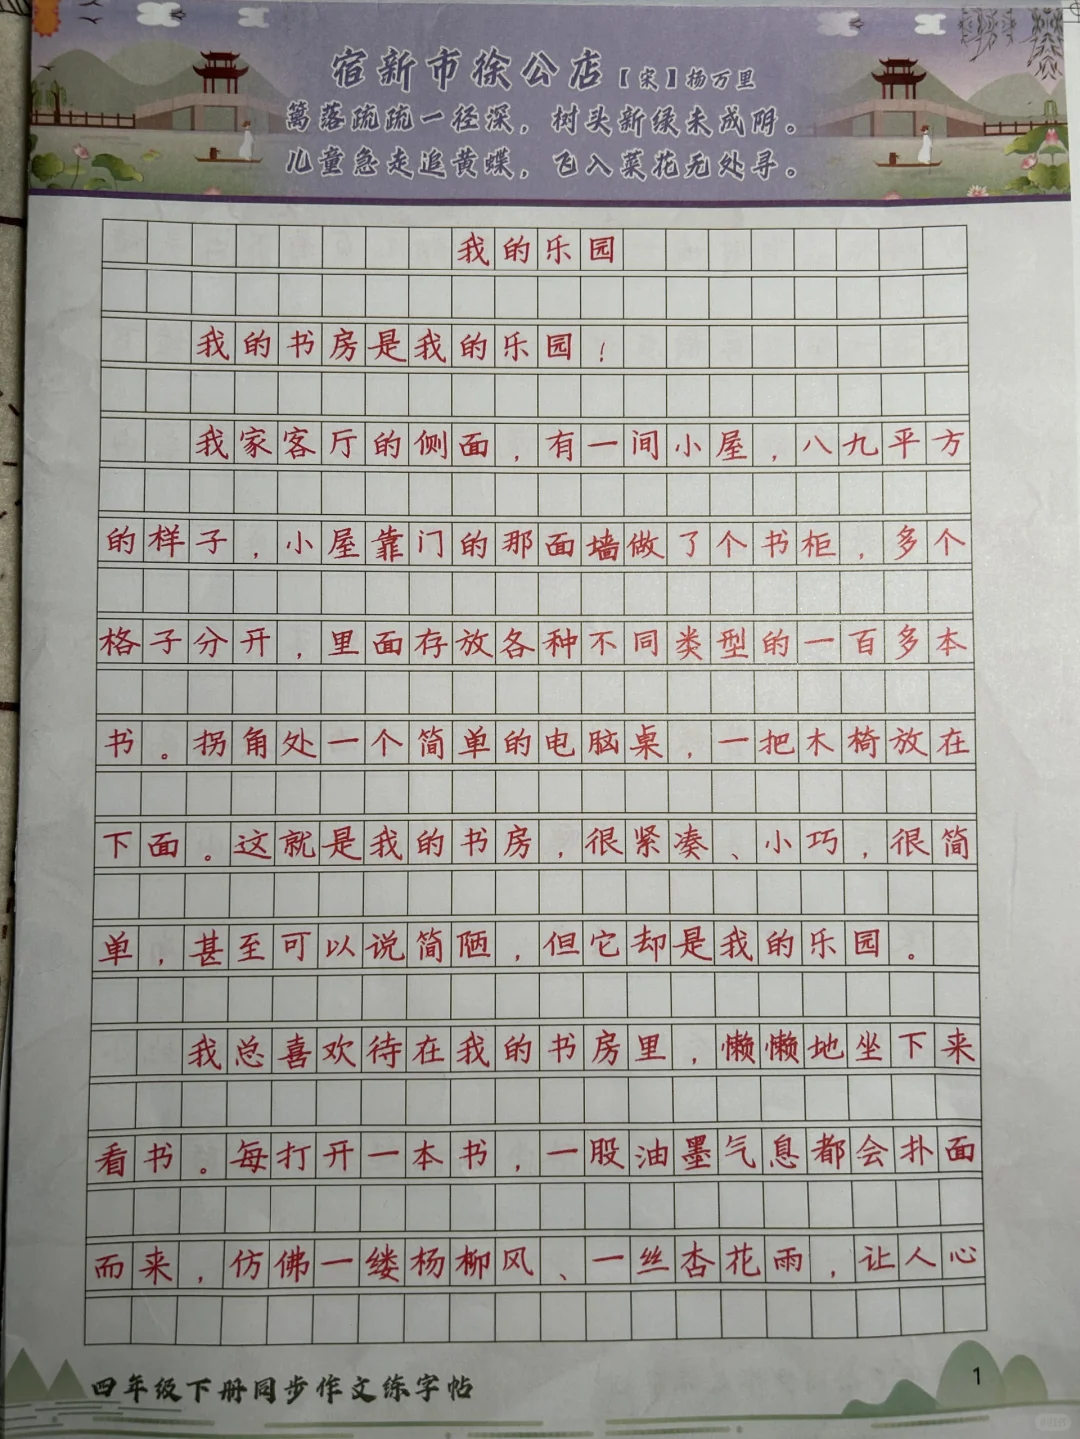 宿新市徐公店【宋】扬万里
篱落疏疏一径深，树头新绿未成阴。
儿童急走追黄蝶，飞入菜花无处寻。
我的乐园
我的书房是我的乐园！
我家客厅的侧面，有一间小屋，八九平方
的样子，小屋靠门的那面墙做了个书柜，多个
格子分开，里面存放各种不同类型的一百多本
书。拐角处一个简单的电脑桌，一把木椅放在
下面。这就是我的书房，很紧凑、小巧，很简
单，甚至可以说简陋，但它却是我的乐园。
我总喜欢待在我的书房里，懒懒地坐下来
看书。每打开一本书，一股油墨气息都会扑面
而来，仿佛一缕杨柳风、一丝杏花雨，让人心
四年级下册同步作文练字帖
1